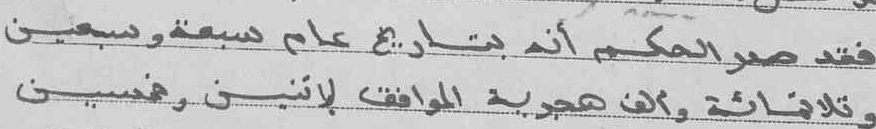 فقد صدر الحكم أنه بتاريخ عام سبعة وسبعين
وثلاثمائة وألف هجرية الموافق لإثنين وخمسين